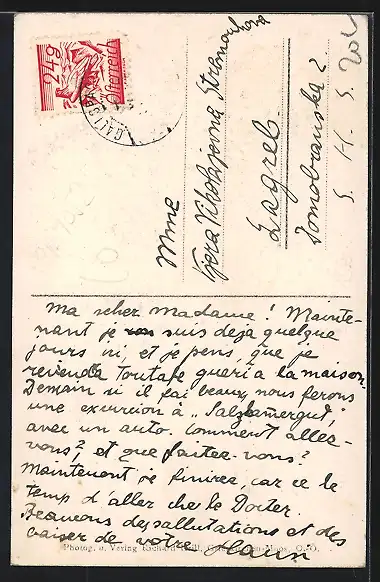 24g
Österreich
Mme
Vjera Nikolajevna Stremouhova
Zagreb
Domobranska 2
S. H. S.
Ma scher Madame! Mainte-
nant je suis deja quelque
jours ici, et je pens, que je
revenda toutafe queri a la maison.
Demain si il fai beaux, nous ferons
une excursion à „Salzkamergut",
avec un auto. Comment alles-
vous?, et que faites-vous?
Maintenant je finirea, car ce le
temp d'aller che le Docter.
Beaucous des sallutations et des
baiser de votre Hansi
Photog. u. Verlag Richard O.-Ö.